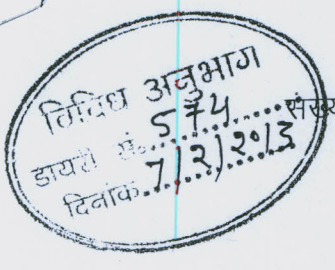 विविध अनुभाग
डायरी सं. 574 संख्य
दिनांक 7/2/2013